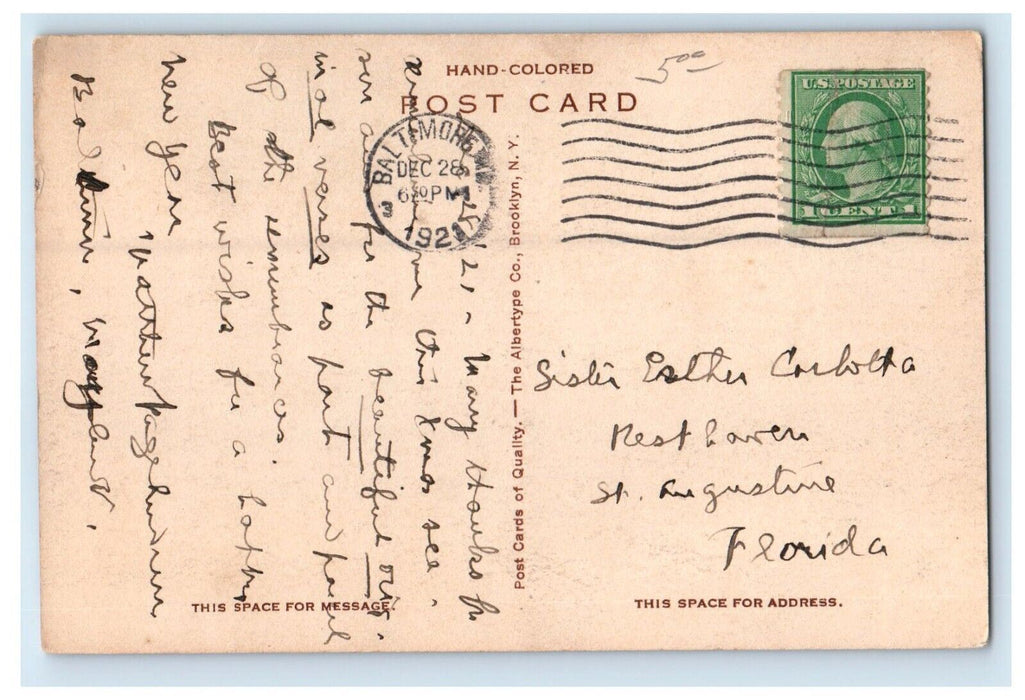 HAND-COLORED
5.00
POST CARD
U.S. POSTAGE
1 CENT 1
BALTIMORE
DEC 28
6 30 PM
1921
3
'21 ~ Many thanks for
this Xmas see.
for the beautiful
verses as part and
of the remembrances.
Best wishes for a happy
new year
Baltimore, Maryland.
Post Cards of Quality. — The Albertype Co., Brooklyn, N. Y.
Sister Esther Carlotta
Rest haven
St. Augustine
Florida
THIS SPACE FOR MESSAGE.
THIS SPACE FOR ADDRESS.